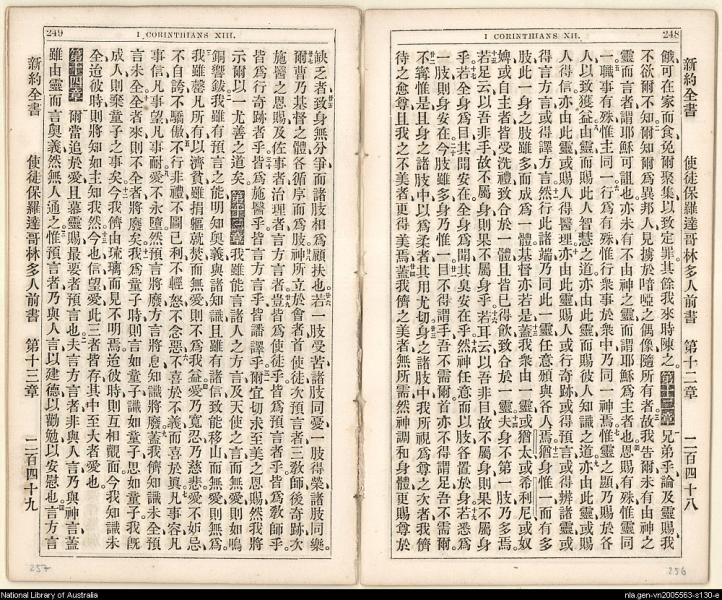 248
I CORINTHIANS XII.
新約全書 使徒保羅達哥林多人前書 第十二章 二百四十八
餓可在家而食免爾聚集以致定罪其餘我來時陳之第十二章兄弟乎論及靈賜我
不欲爾不知爾知爾爲異邦人見攜於喑啞之偶像隨所有者故我告爾未有由神之
靈而言者謂耶穌可詛也亦未有不由神之靈而謂耶穌爲主者也恩賜有殊惟靈同
一職事有殊惟主同一行爲有殊惟行衆事於衆中乃同一神焉惟靈之顯乃賜於各
人以致獲益由靈而賜此人智慧之道亦由此靈而賜彼人知識之道亦由此靈或賜
人得信亦由此靈或賜人得醫理亦由此靈賜人或行奇跡或得預言或得辨諸靈或
得言方言或得譯方言然行此諸端乃同此一靈任意頒與各人焉猶身惟一而有多
肢此一身之肢雖多而成爲一體基督亦若是蓋我衆由一靈或猶太或希利尼或奴
婢或自主者皆受洗禮致合於一體且皆已得飲致合於一靈夫身不第一肢乃多焉
若足云以吾非手故不屬身則果不屬身乎若耳云以吾非目故不屬身則果不屬身
乎若全身爲目其聞安在全身爲聞其臭安在乎然神任意而以肢各置於身若悉爲
一肢則身安在今肢雖多身乃惟一目不得謂手吾不需爾首亦不得謂足吾不需爾
不寧惟是且身之諸肢中以爲柔者其用尤切身之諸肢中我所視爲尊之次者我儕
待之愈尊且我之不美者更得美焉蓋我儕之美者無所需然神調和身體更賜尊於
256
249
I CORINTHIANS XIII.
缺乏者致身無分爭而諸肢相爲顧扶也若一肢受苦諸肢同憂一肢得榮諸肢同樂
爾曹乃基督之體各循序而爲肢神所立於會者首使徒次預言者三敎師後奇跡次
施醫之恩賜及佐事者治理者言方言者豈皆爲使徒乎皆爲預言者乎皆爲敎師乎
皆爲行奇跡者乎皆爲施醫乎皆言方言乎皆譯乎爾宜切求至美之恩賜然我將
示爾以一尤善之道矣第十三章我雖能言諸人之方言及天使之言而無愛則如鳴
銅響鈸我雖有預言之能明知奧義與諸知識且雖有諸信致能移山而無愛則無爲
我雖罄凡所有以濟貧雖捐軀就焚而無愛則不爲我益愛乃寬忍乃慈悲愛不妬忌
不自誇不驕傲不行非禮不圖己利不輕怒不念惡不喜於不義而喜於眞凡事容凡
事信凡事望凡事耐愛不永墮然預言將廢方言將息知識將廢蓋我儕知識未全預
言未全全者來則不全者將廢矣我爲童子時則言如童子識如童子思如童子我旣
成人則棄童子之事矣今我儕由琉璃而見不明焉迨彼時則互相觀面今我知識未
全迨彼時則將知如主知我然今也信望愛此三者皆存其中至大者愛也
第十四章爾當追於愛且慕靈賜最要者預言也夫言方言者非與人言乃與神言蓋
雖由靈而言奧義然無人通之惟預言者乃與人言以建德以勸勉以安慰也言方言
新約全書 使徒保羅達哥林多人前書 第十三章 二百四十九
257
National Library of Australia
nla.gen-vn2005563-s130-e